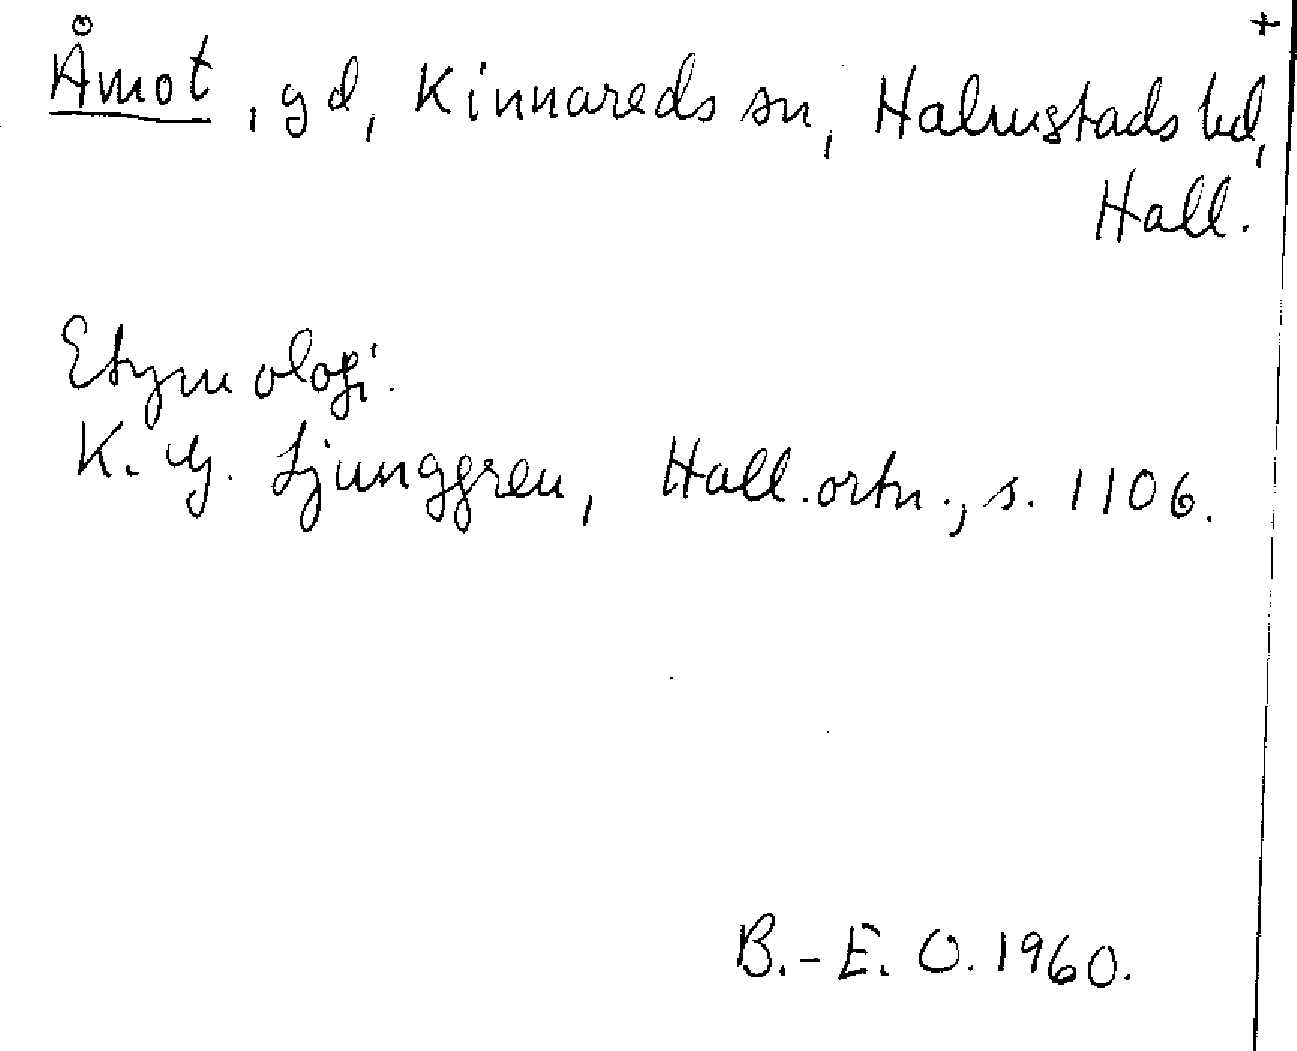 +
Åmot, gd, Kinnareds sn, Halmstads hd,
Hall.
Etymologi.
K. G. Ljunggren, Hall. ortn., s. 1106.
B.-E. O. 1960.